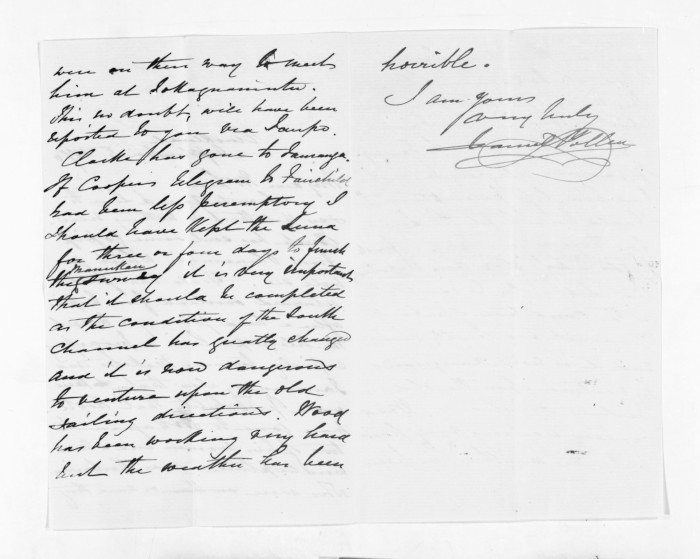 were on their way to meet
him at Tokaanuintu.
This no doubt, will have been
reported to you via Taupo.
Clarke has gone to Tauranga.
If Coopers telegram to Fairchild
had been less peremptory I
should have kept the Luna
for three or four days to finish
the Manukau survey it is very important
that it should be completed
as the condition of the South
Channel has greatly changed
and it is now dangerous
to venture upon the old
sailing directions. Wood
has been working very hard
but the weather has been
horrible.
I am yours
very truly
Daniel Pollen